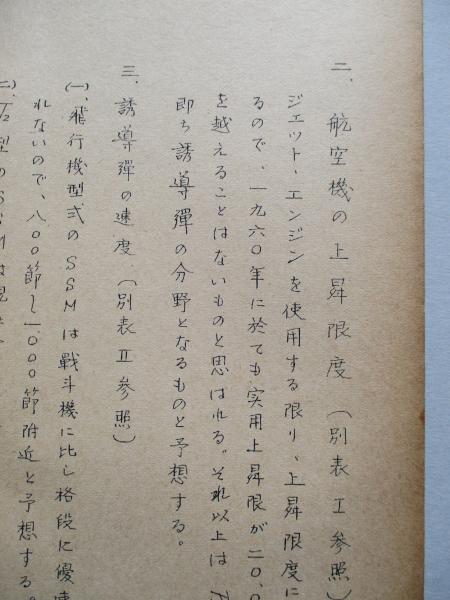 二、航空機の上昇限度（別表Ⅰ参照）
ジェット、エンジンを使用する限り、上昇限度に
るので、一九六〇年に於ても実用上昇限が二〇、〇
を越えることはないものと思はれる。それ以上は
即ち誘導彈の分野となるものと予想する。
三、誘導彈の速度（別表Ⅱ参照）
(一)、飛行機型式のＳＳＭは戰斗機に比し格段に優速
れないので、八〇〇節〜一、〇〇〇節附近と予想する。
(二)、型のＳＳＭは